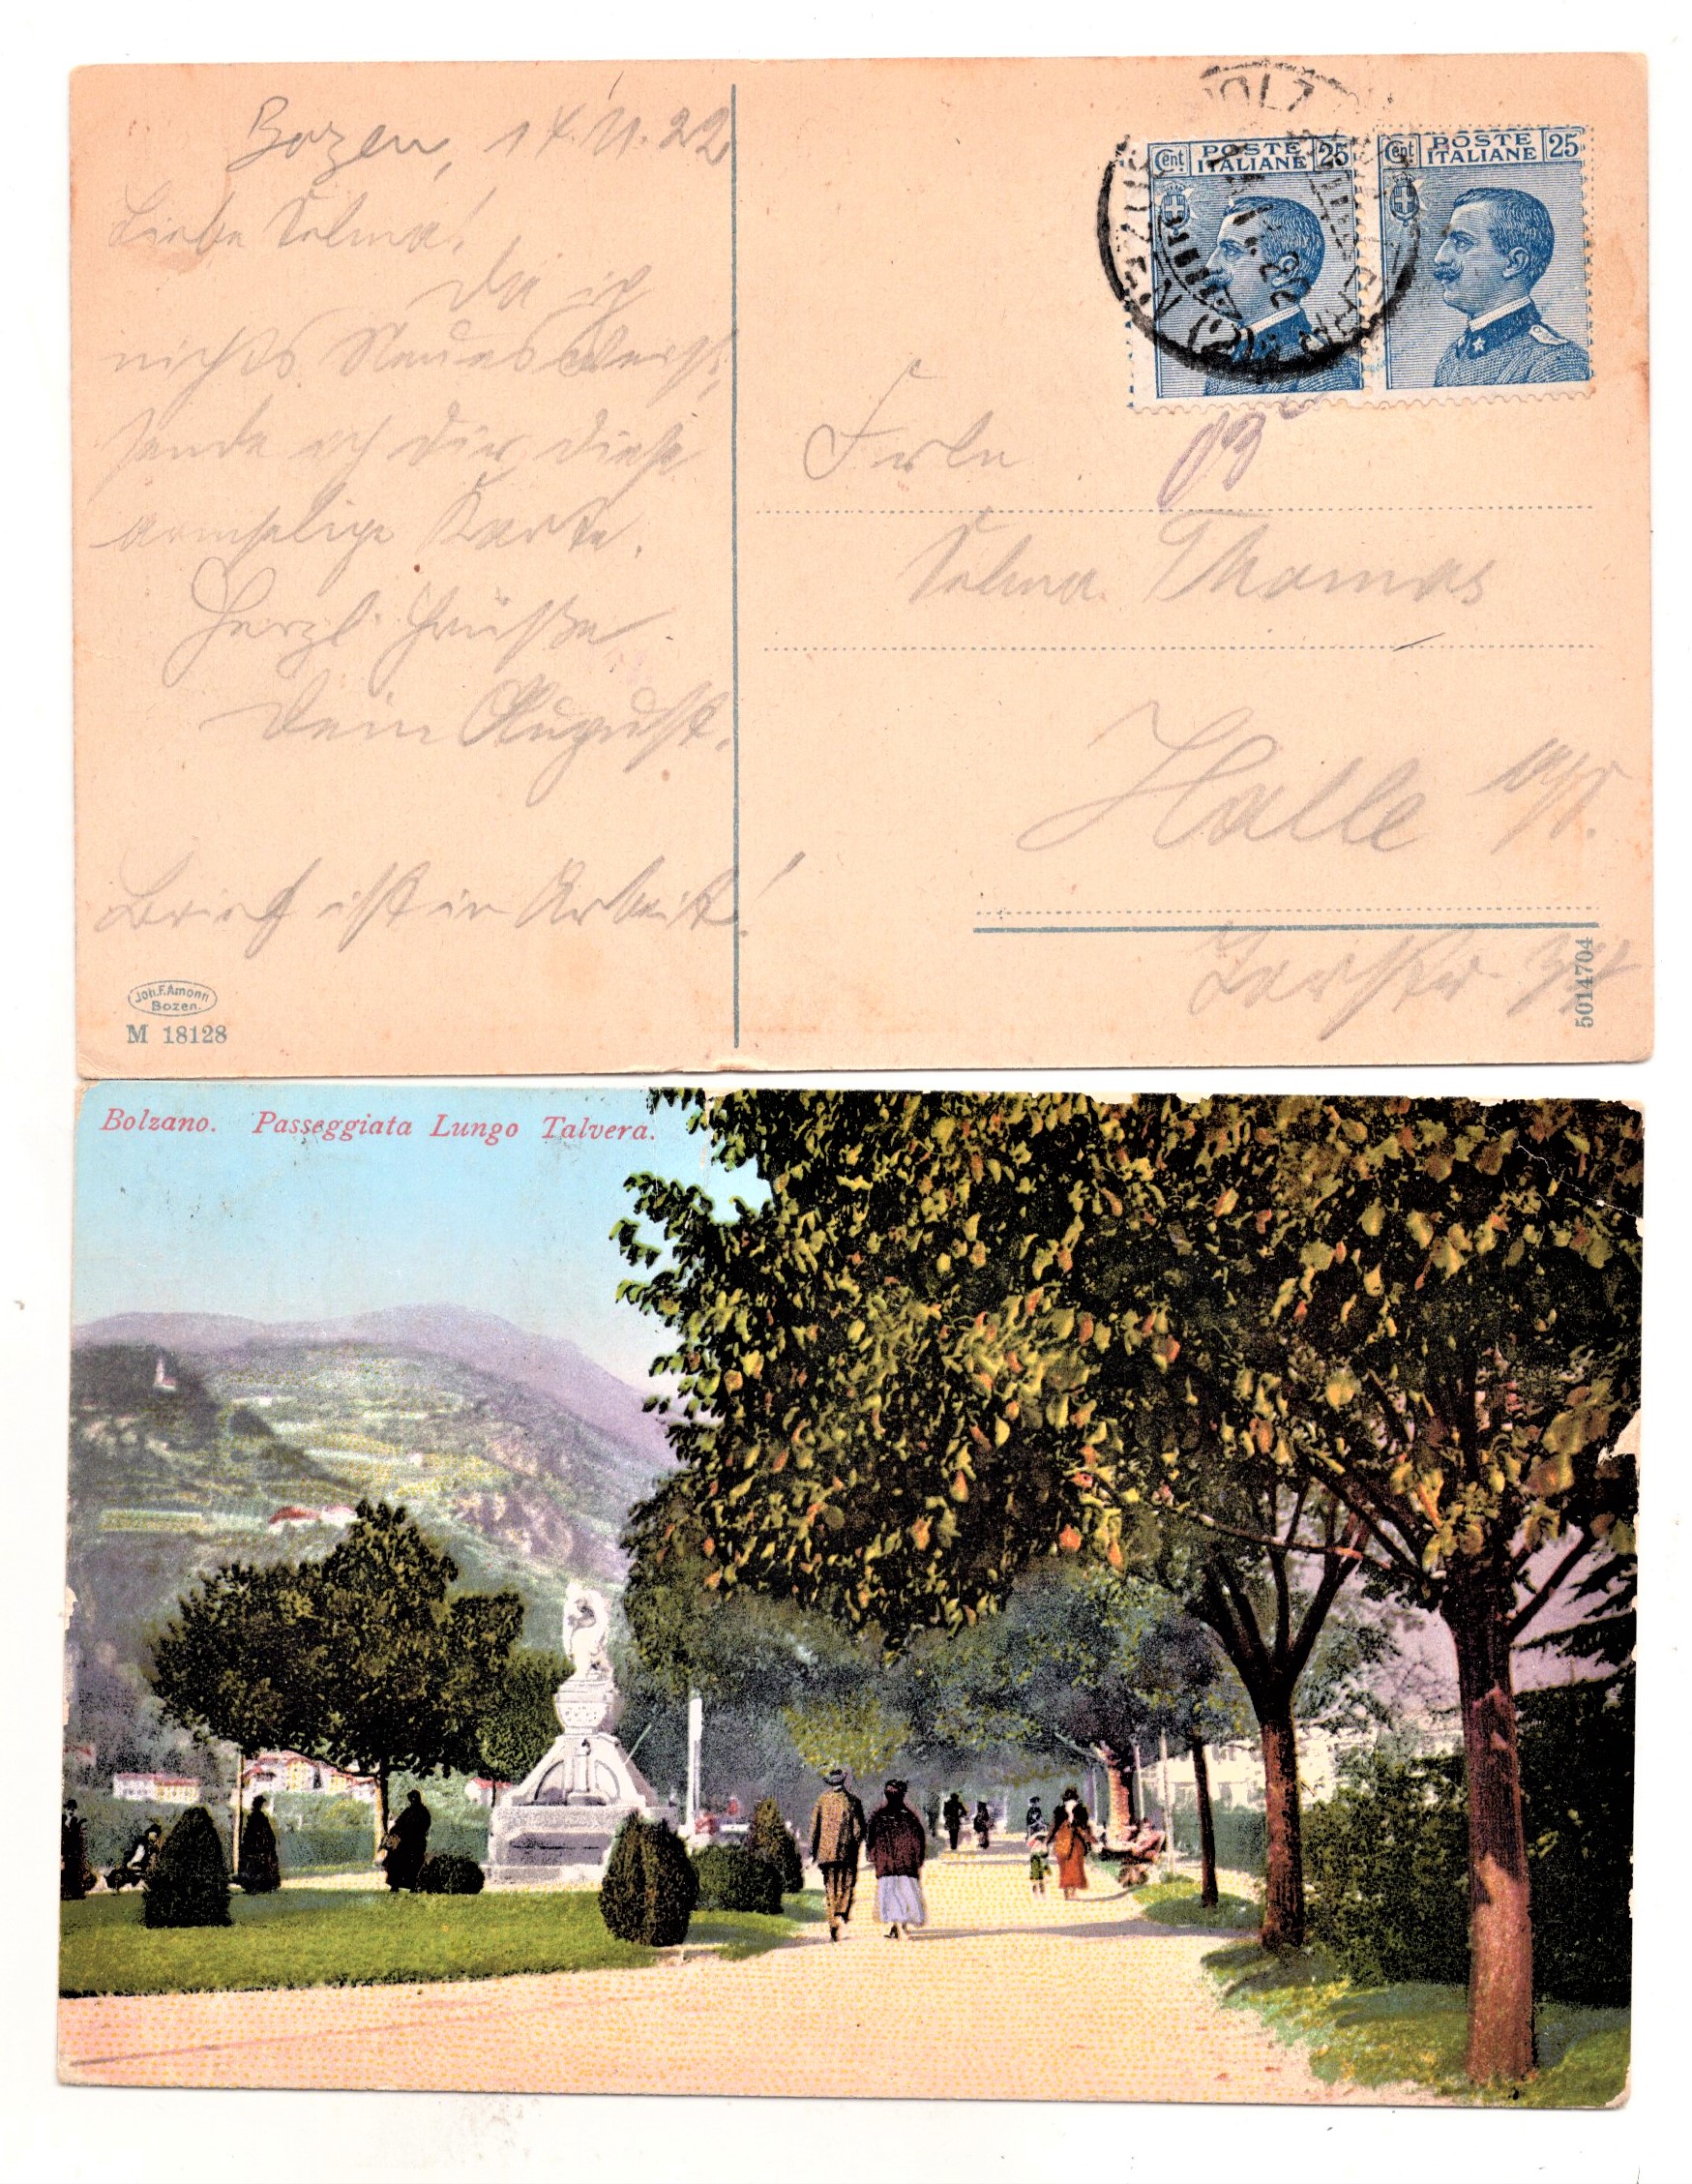 Bozen, 14.11.22
Liebe Selma!
Da ich
nichts Neues weiß,
sende ich Dir diese
armselige Karte.
Herzl. Grüße
Dein August.
Brief ist in Arbeit!
Joh.F.Amonn
Bozen.
M 18128
Cent 25 POSTE ITALIANE
Cent 25 POSTE ITALIANE
Frln
Selma Thomas
Halle a/S.
5014704
Bolzano. Passeggiata Lungo Talvera.